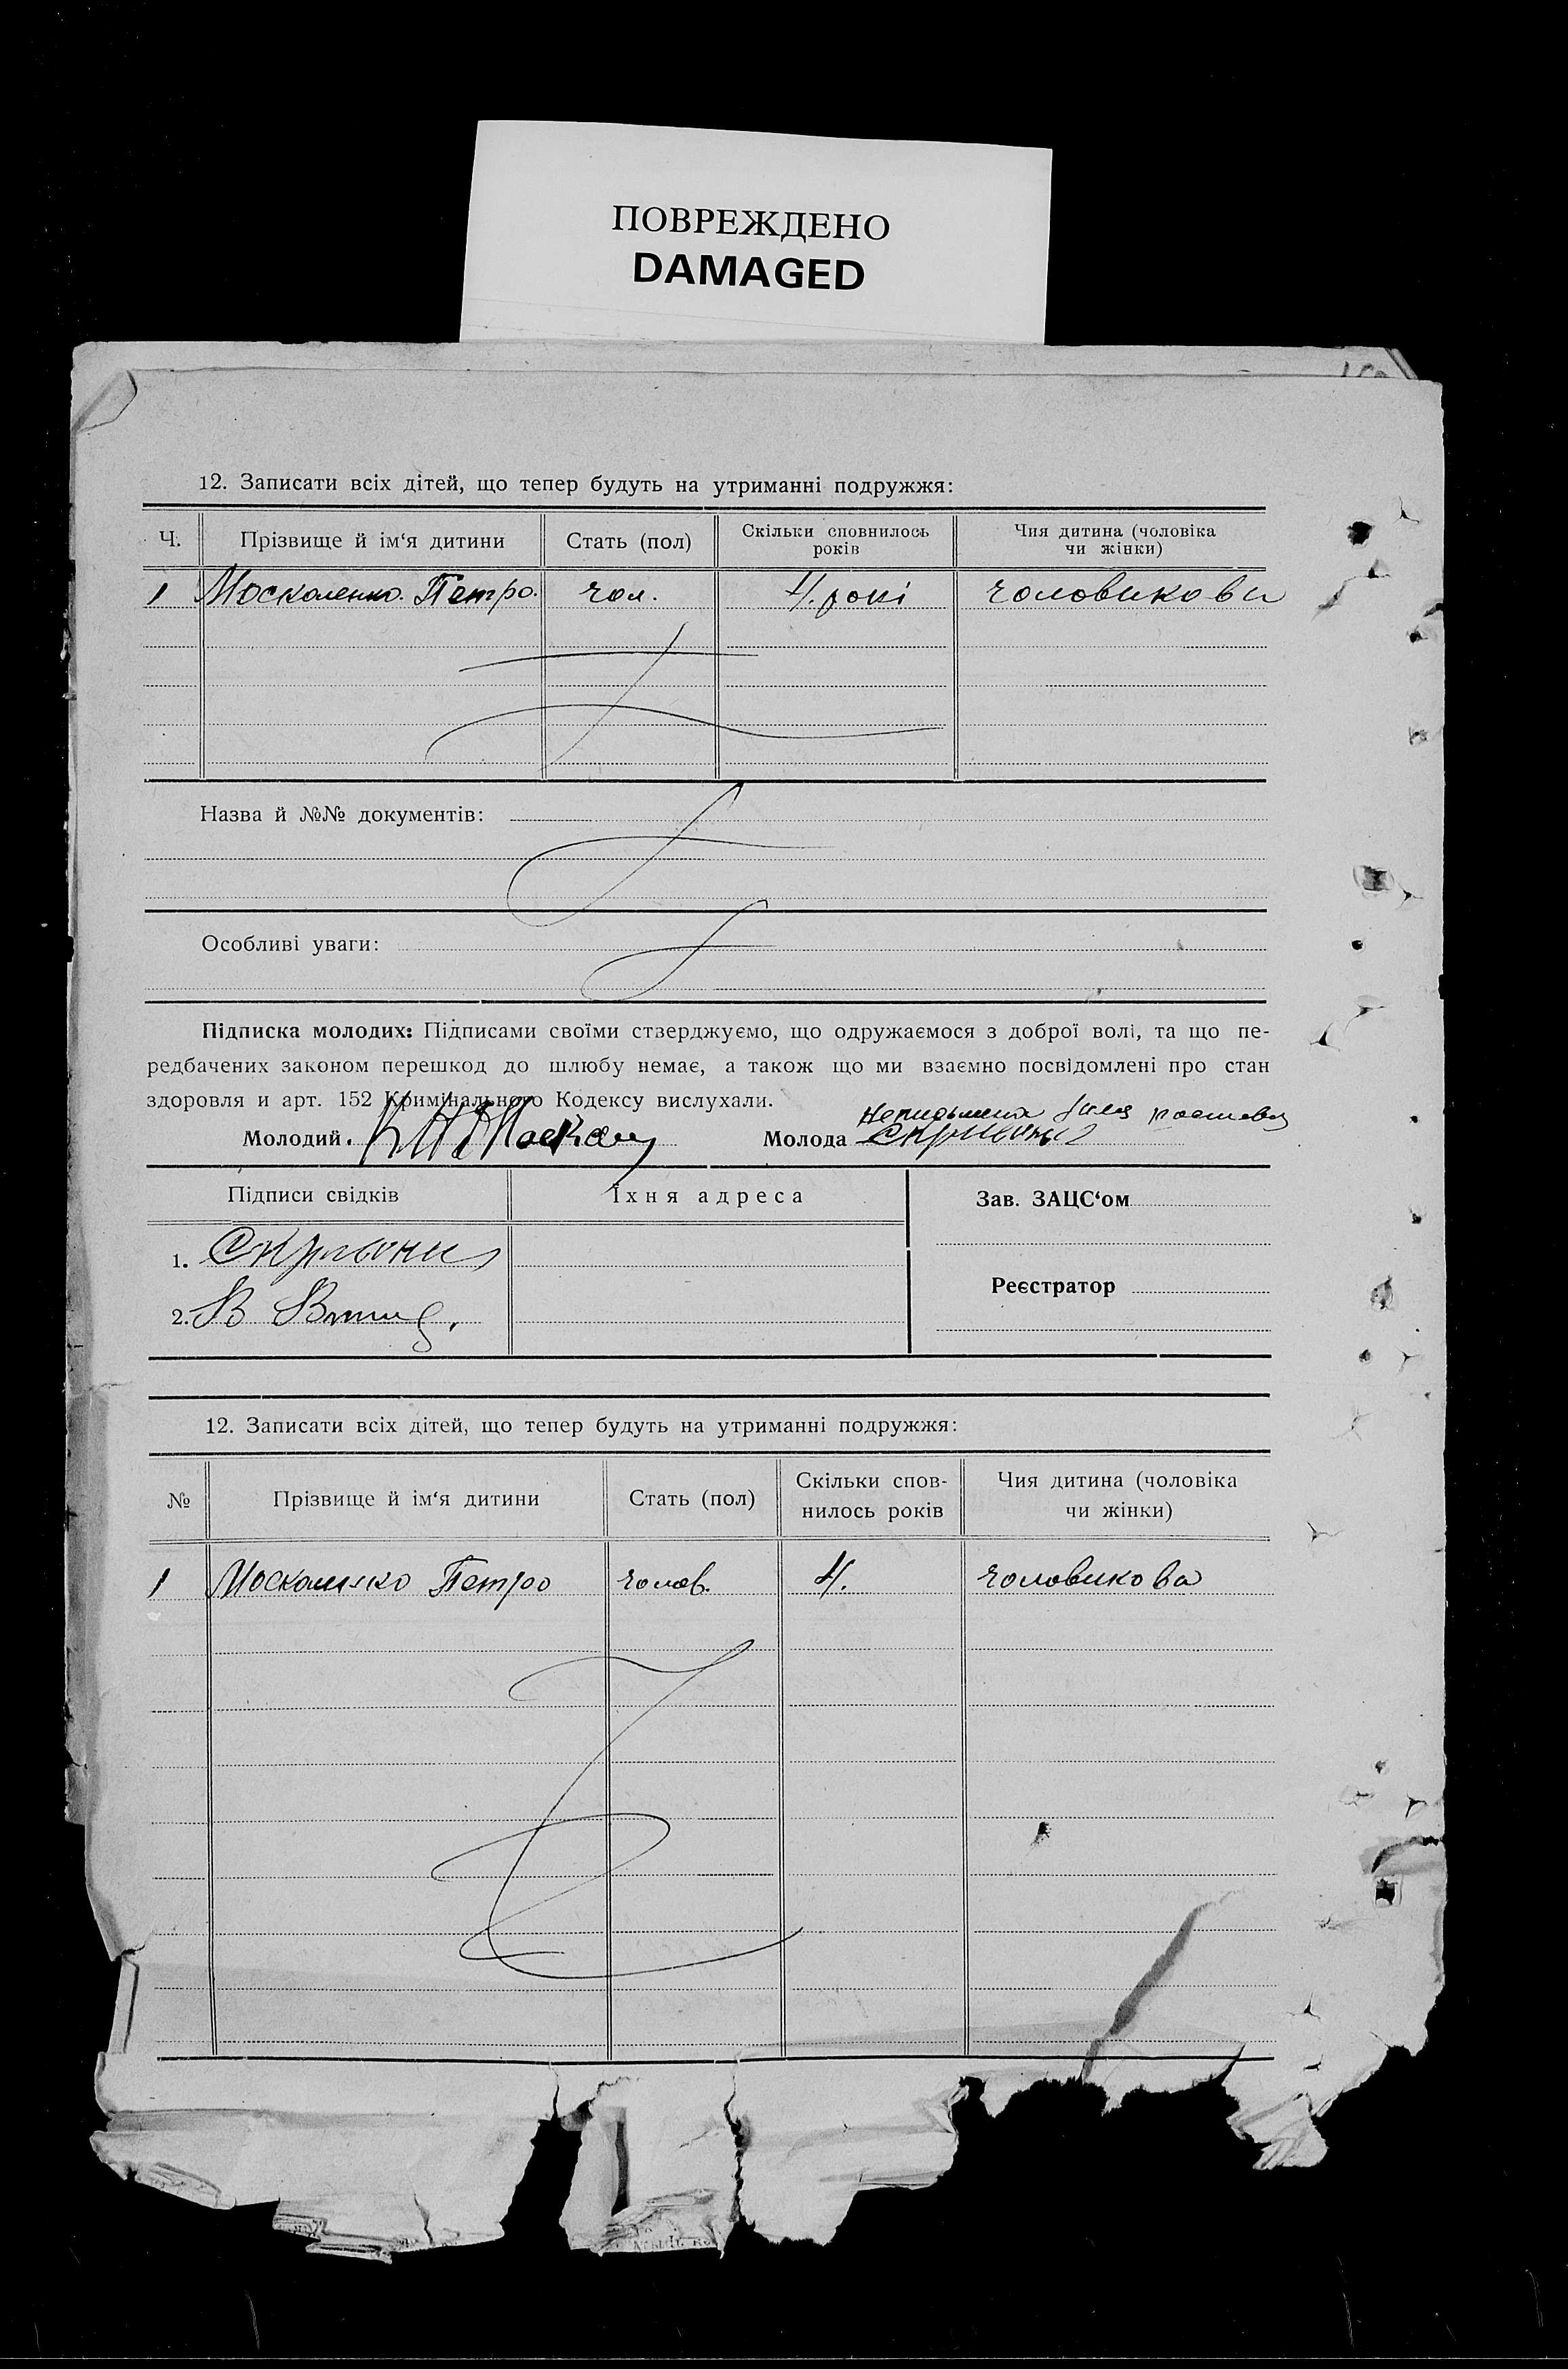 ПОВРЕЖДЕНО
DAMAGED
12. Записати всіх дітей, що тепер будуть на утриманні подружжя:
Ч. Прізвище й ім‘я дитини Стать (пол) Скільки сповнилось років Чия дитина (чоловіка чи жінки)
1 Москаленко Петро. чол. 4. рокі чоловикова
Назва й №№ документів:
Особливі уваги:
Підписка молодих: Підписами своїми стверджуємо, що одружаємося з доброї волі, та що пе-
редбачених законом перешкод до шлюбу немає, а також що ми взаємно посвідомлені про стан
здоровля и арт. 152 Кримінального Кодексу вислухали.
Молодий. Молода
Підписи свідків Їхня адреса Зав. ЗАЦС‘ом
1.
Реєстратор
2. В
12. Записати всіх дітей, що тепер будуть на утриманні подружжя:
№ Прізвище й ім‘я дитини Стать (пол) Скільки спов-
нилось років Чия дитина (чоловіка
чи жінки)
1 Москаленко Петро чолов. 4. чоловикова